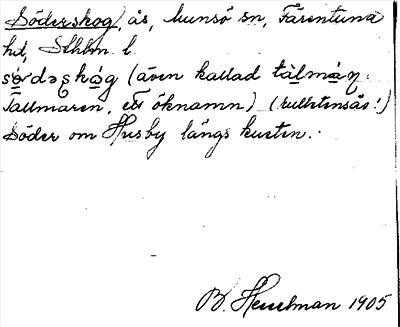 Söderskog, ås, Munsö sn, Färentuna
hd, Sthlm l.
sö̀dəskóg (även kallad tálmán:
Tallmaren, ett öknamn) (rullstensås!)
Söder om Husby längs kusten.
B. Hesselman 1905